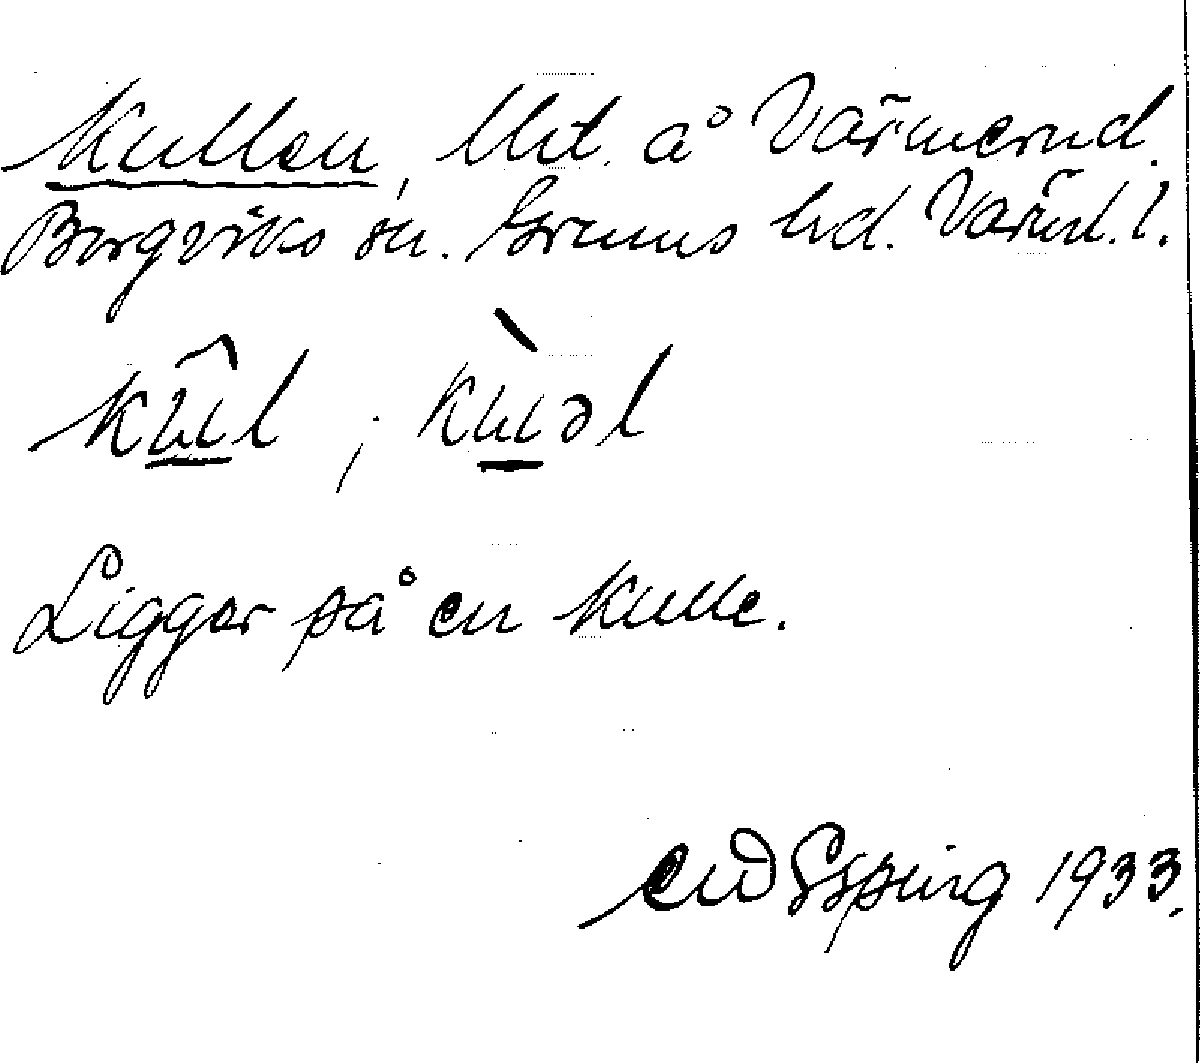 Kullen, lht. å Värmerud.
Borgviks sn. Grums hd. Värml. l.
kûl ; kùəl
Ligger på en kulle.
Esping 1933.